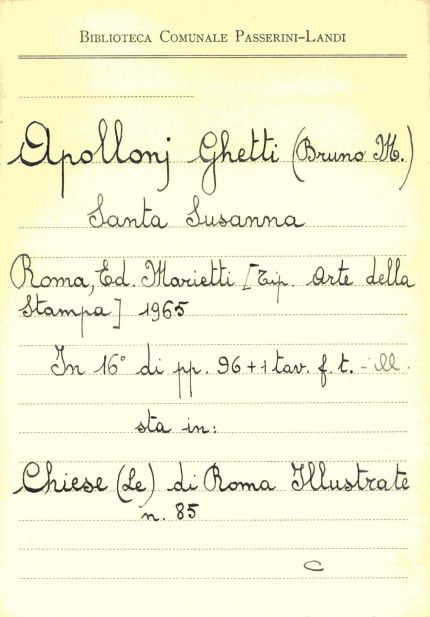 BIBLIOTECA COMUNALE PASSERINI-LANDI
Apollonj Ghetti (Bruno M.)
Santa Susanna
Roma, Ed. Marietti [Tip. Arte della
Stampa] 1965
In 16° di pp. 96 + 1 tav. f. t. - ill.
sta in:
Chiese (Le) di Roma Illustrate
n. 85
C